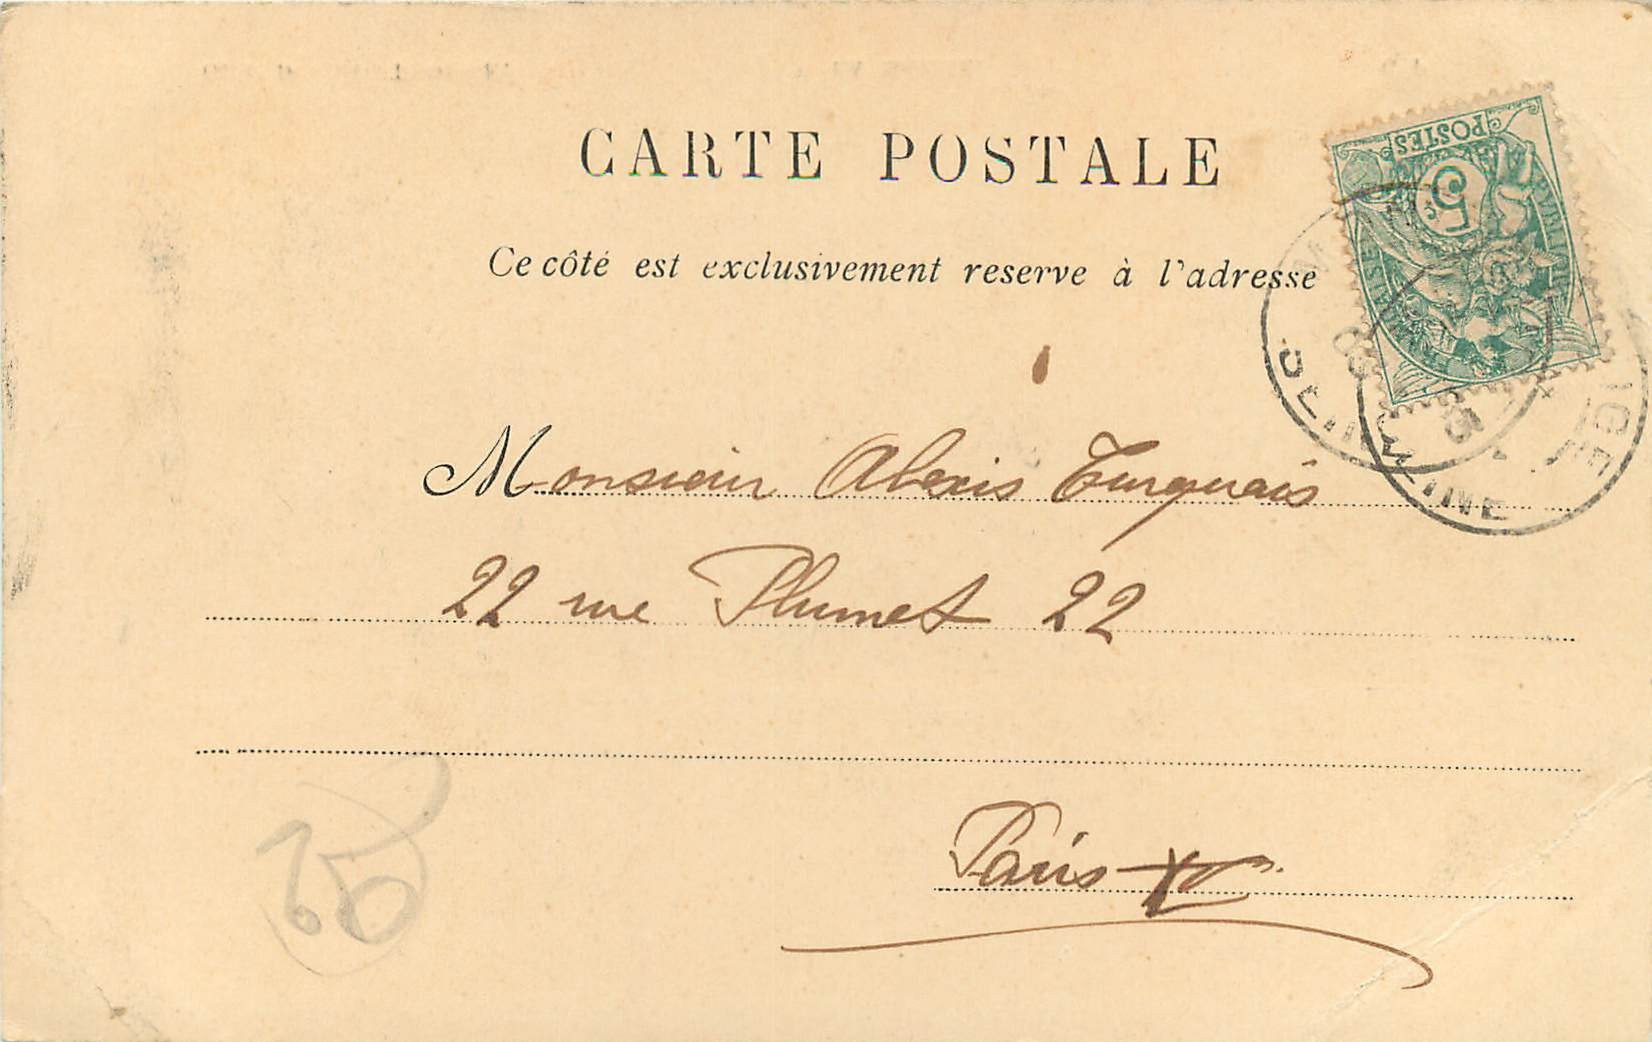 CARTE POSTALE
Ce côté est exclusivement reserve à l'adresse
POSTES
5
SEINE
SEINE
03
Monsieur Alexis Turquais
22 rue Plumet 22
Paris